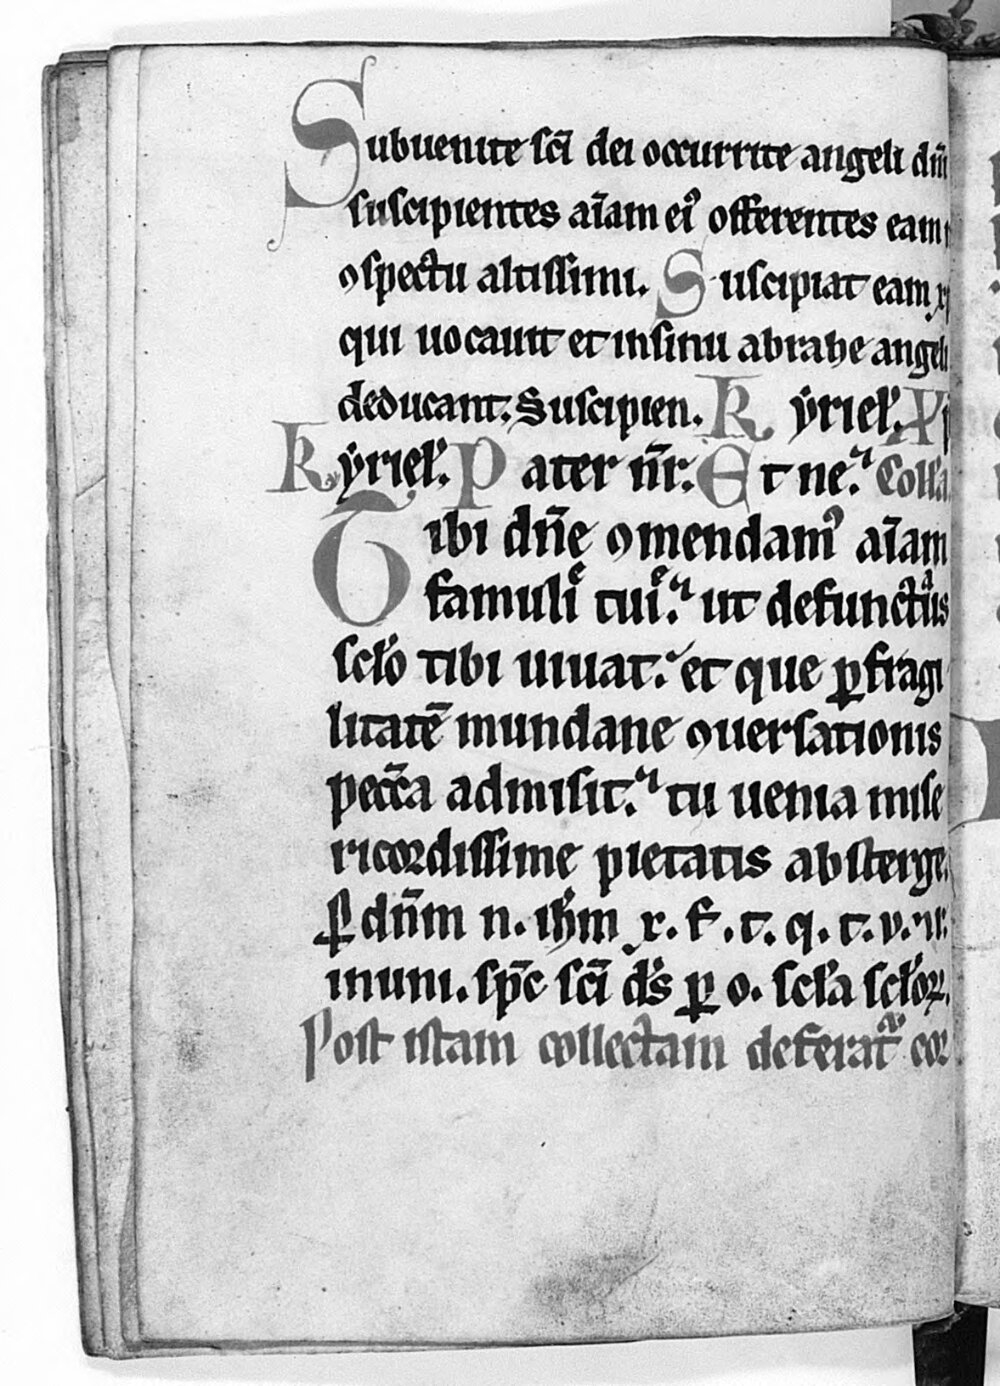 Subuenite sc̄i dei occurrite angeli dn̄i
suscipientes aīam ei⁹ offerentes eam
ꝯspectu altissimi. Suscipiat eam xp̄
qui uocauit et insinu abrahe angeli
deducant. Suscipien. Kyriel̓. Xp̄
Kyriel̓. Pater nr̄. Et ne. Coll̓a
Tibi dn̄e ꝯmendam⁹ aīam
famuliͤ tuiͤ. ut defunctᵃus
scl̓o tibi uiuat. et que ꝑfragi
litatē mundane ꝯuersationis
pecc̄a admisit. tu uenia mise
ricordissime pietatis absterge.
ꝑ dn̄m n. ih̄m x. f. t. q. t. v. ⁊ r.
inuni. sp̄c sc̄i ds̄ ꝑ o. scl̓a scl̓oꝝ.
Post istam collectam deferat᷑ cor